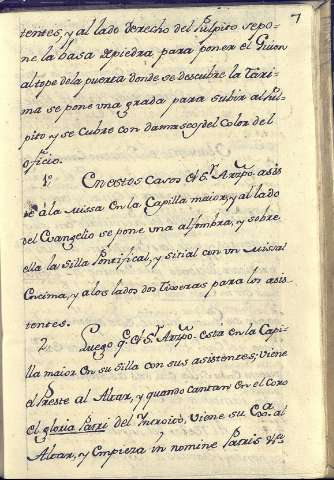 7
tentes, y al lado derecho del Pulpito se po-
ne la basa de piedra para poner el Guion
al tope de la puerta donde se descubre la Tari-
ma se pone una grada para subir al Pul-
pito y se Cubre con damasco del Color del
oficio.
1º En estos Casos el Sr. Arzpo. asis
te â la Missa en la Capilla maior, y al lado
del Evangelio se pone una alfombra, y sobre
ella la Silla Pontifical, y sitial con un Missal
Encima, y a los lados dos Tixeras para los asis
tentes.
2. Luego q.e el Sr. Arzpo. esta en la Capi-
lla maior en su Silla con sus asistentes; viene
el Preste al Altar, y quando cantan en el Coro
el gloria Patri del Introito, viene su Exa. al
Altar, y Empieza in nomine Patris